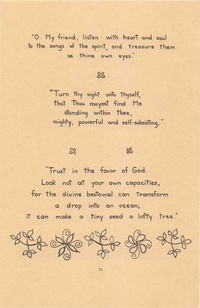 "O My friend, listen with heart and soul
to the songs of the spirit, and treasure them
as thine own eyes."
"Turn thy sight unto thyself,
that thou mayest find Me
standing within thee,
mighty, powerful and self-subsisting."
"Trust in the favor of God.
Look not at your own capacities,
for the divine bestowal can transform
a drop into an ocean;
it can make a tiny seed a lofty tree."